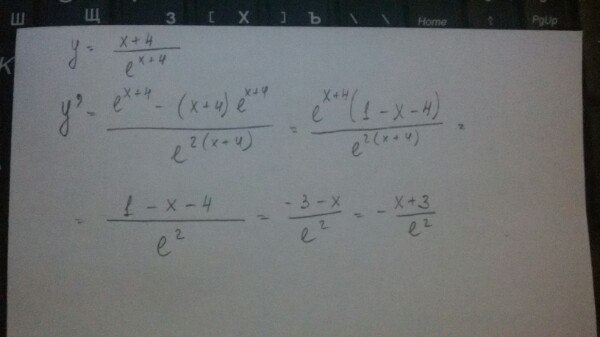 Ш Щ З [ Х ] Ъ \ \ Home ↑ PgUp
y = x+4 / e^(x+4)
y' = (e^(x+4) - (x+4) e^(x+4)) / e^(2(x+4)) = e^(x+4) (1-x-4) / e^(2(x+4)) =
= (1-x-4) / e^2 = (-3-x) / e^2 = - (x+3) / e^2